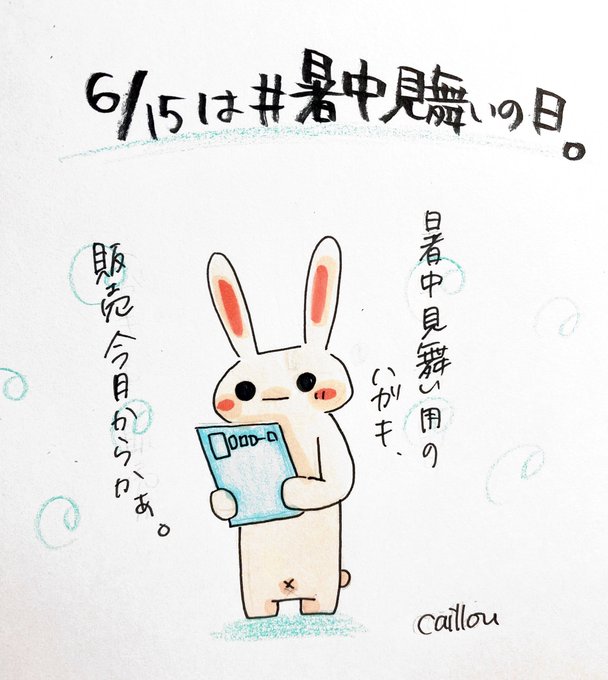 6/15は#暑中見舞いの日。
暑中見舞い用の
いがキ、
販売今月からかぁ。
caillou